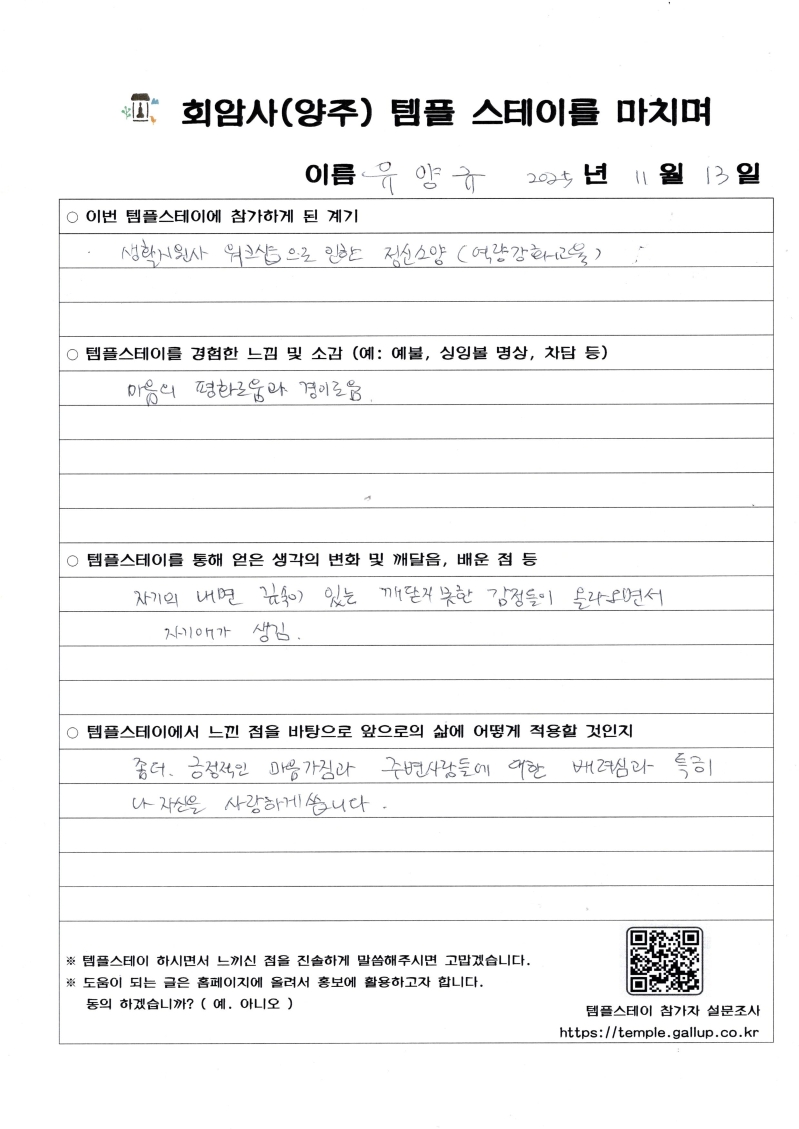 회암사(양주) 템플 스테이를 마치며
이름 유 양 규 2025년 11월 13일
○ 이번 템플스테이에 참가하게 된 계기
생활지원사 워크샵으로 인한 정신소양 (역량강화교육)
○ 템플스테이를 경험한 느낌 및 소감 (예: 예불, 싱잉볼 명상, 차담 등)
마음의 평화로움과 경이로움.
○ 템플스테이를 통해 얻은 생각의 변화 및 깨달음, 배운 점 등
자기의 내면 깊속이 있는 깨닫지 못한 감정들이 올라오면서
자기애가 생김.
○ 템플스테이에서 느낀 점을 바탕으로 앞으로의 삶에 어떻게 적용할 것인지
좀더. 긍정적인 마음가짐과 주변사람들에 대한 배려심과 특히
나 자신을 사랑하게씁니다.
※ 템플스테이 하시면서 느끼신 점을 진솔하게 말씀해주시면 고맙겠습니다.
※ 도움이 되는 글은 홈페이지에 올려서 홍보에 활용하고자 합니다.
동의 하겠습니까? ( 예. 아니오 )
템플스테이 참가자 설문조사
https://temple.gallup.co.kr